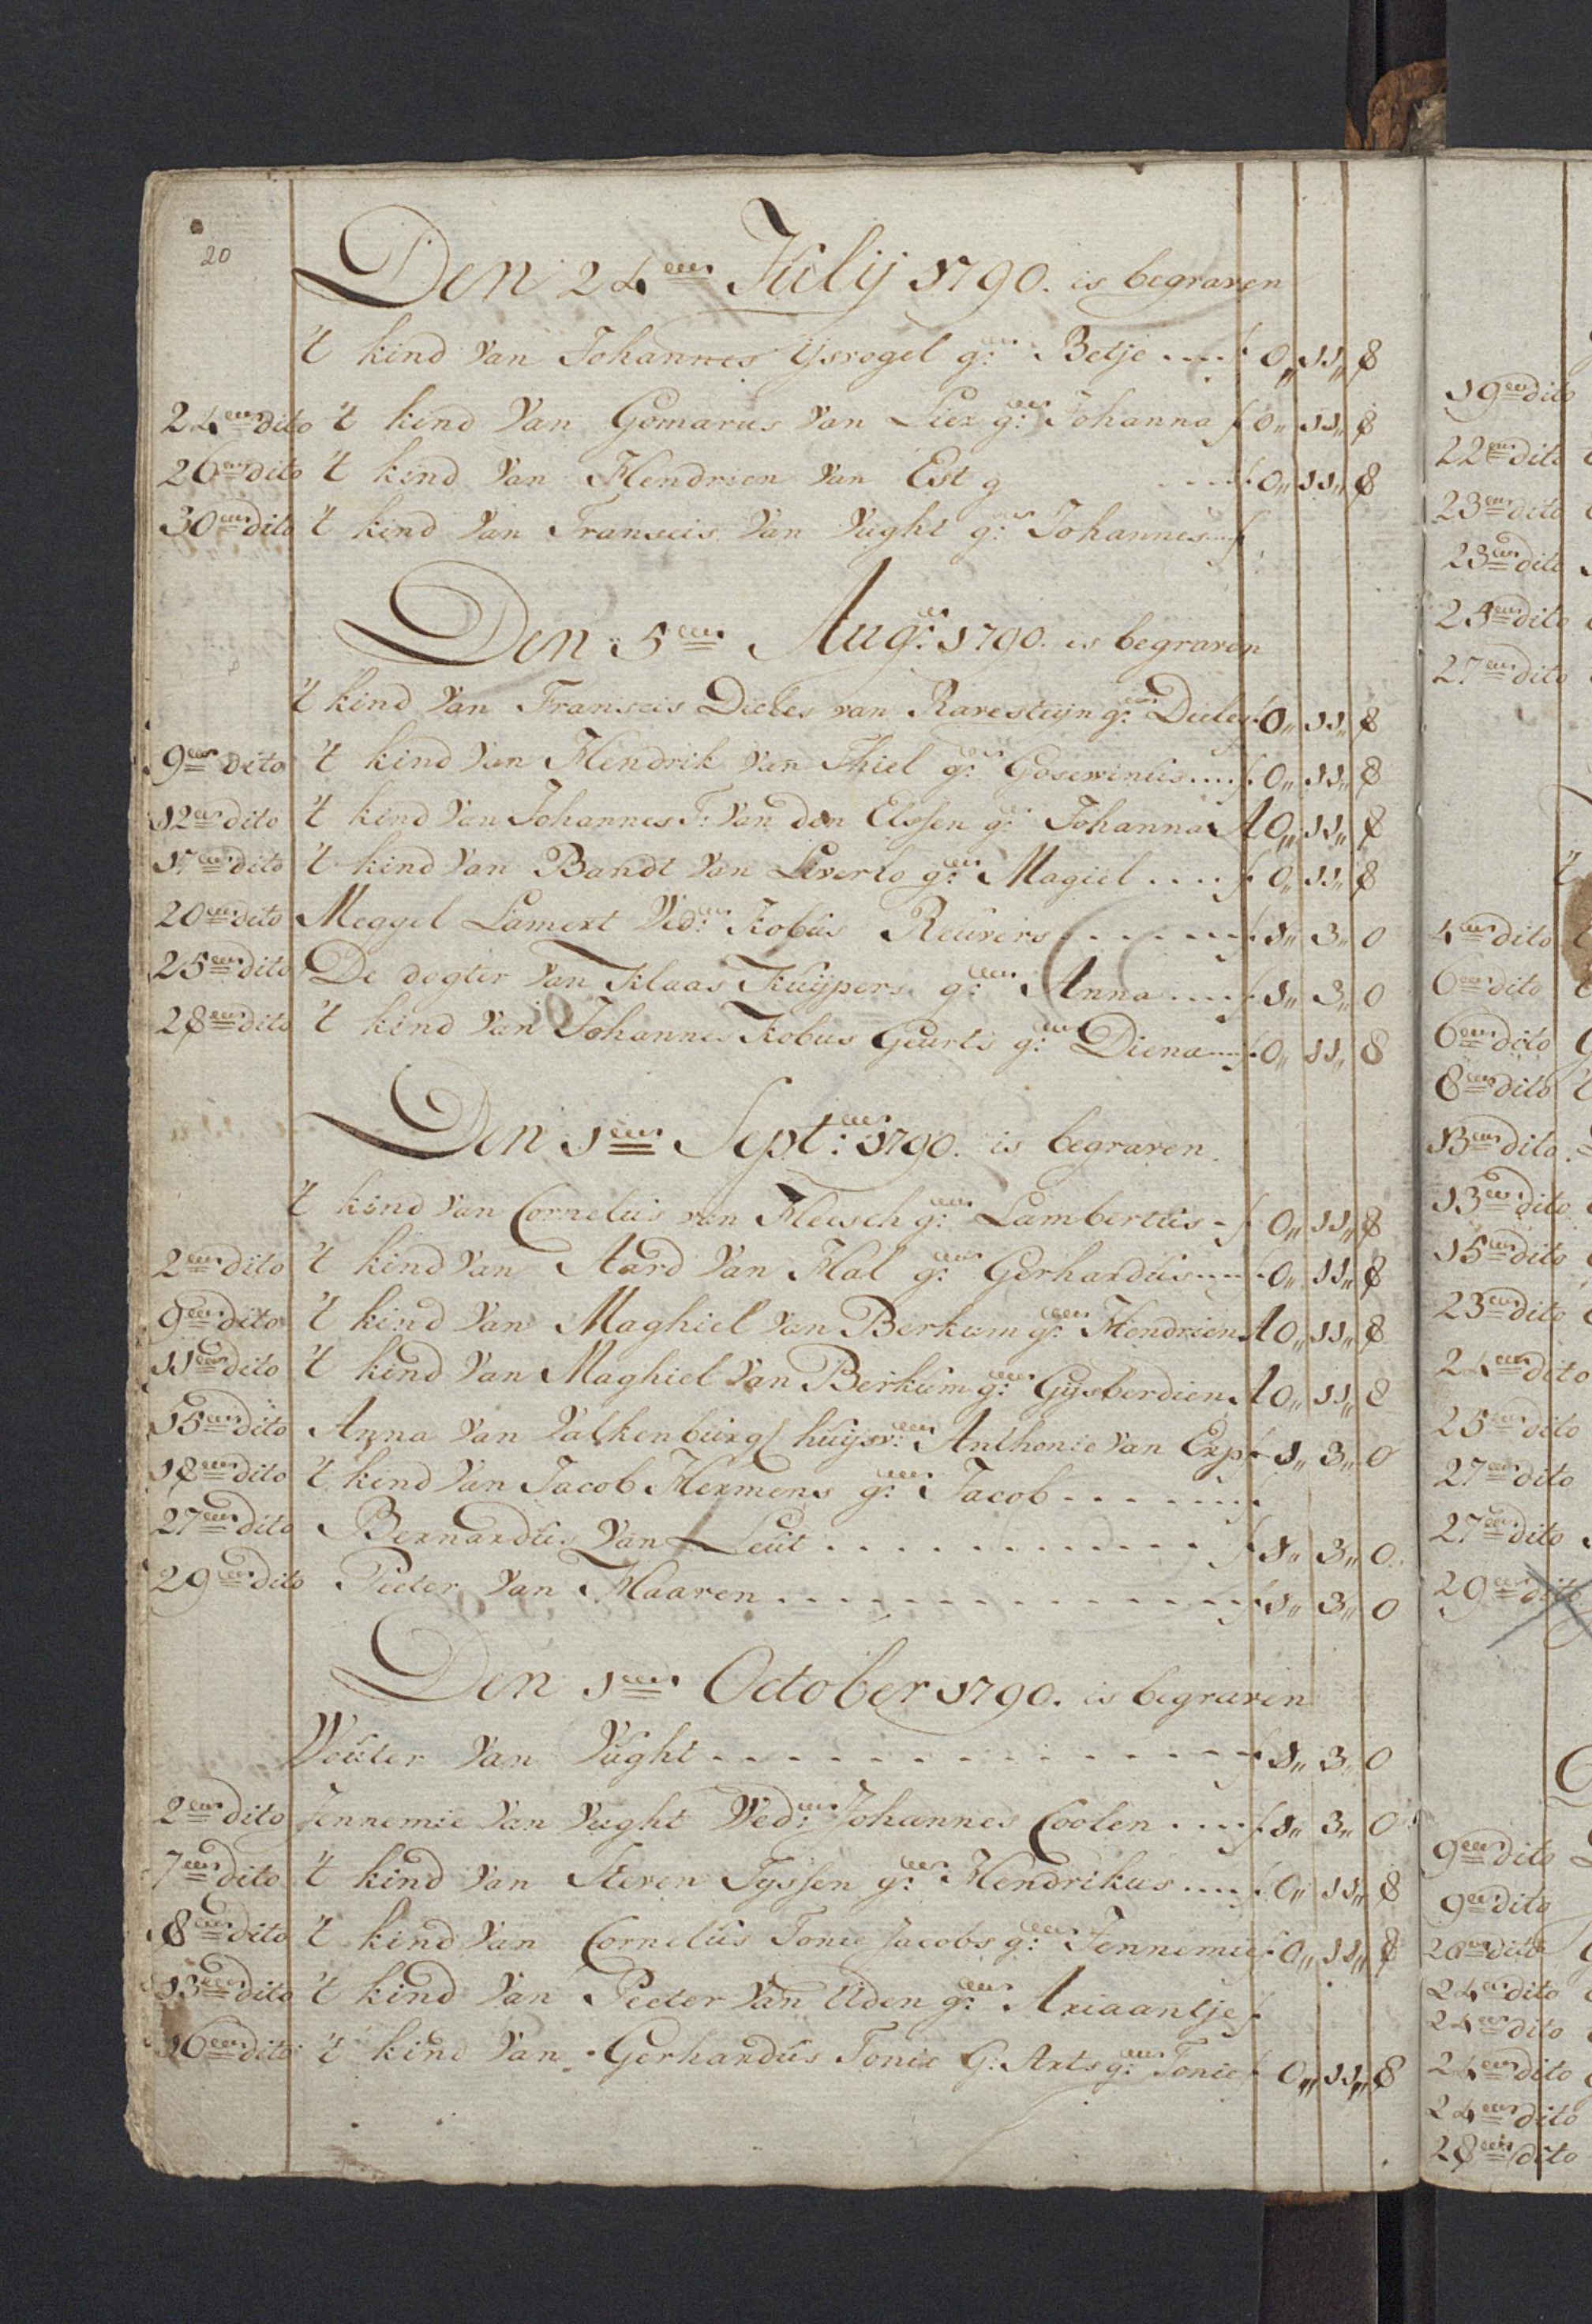 20
Den 24een Julij 1790. is begraven
't kind Van Johannes Ysvogel g: Betje .... f 0,, 11,, 8
24een dito 't kind Van Gomarus Van Lier g: Johanna f 0,, 11,, 8
26een dito 't kind Van Hendrien Van Est g .... f 0,, 11,, 8
30een dito 't kind Van Franscis Van Vught g: Johannes ... f
Den 5een Aug: 1790. is begraven
't kind Van Franscis Dieles van Ravesteijn g: Dieles f 0,, 11,, 8
9een dito 't kind Van Hendrik Van Thiel g: Gosewinus .... f 0,, 11,, 8
12een dito 't kind Van Johannes F: Van den Elssen g: Johanna f 0,, 11,, 8
17een dito 't kind Van Bandt Van Lieverlo g: Magiel .... f 0,, 11,, 8
20een dito Meggel Lamert Wed: Kobus Reuvers ....... f 1,, 3,, 0
25een dito De dogter Van Klaas Kuijpers g: Anna .... f 1,, 3,, 0
28een dito 't kind Van Johannes Kobus Geurts g: Diena .... f 0,, 11,, 8
Den 1een Sept: 1790. is begraven.
't kind Van Cornelus van Heesch g: Lambertus - f 0,, 11,, 8
2een dito 't kind Van Aard Van Hal g: Gerhardus .... f 0,, 11,, 8
9een dito 't kind Van Maghiel Van Berkum g: Hendrien f 0,, 11,, 8
11een dito 't kind Van Maghiel Van Berkum g: Gysberdien f 0,, 11,, 8
15een dito Anna Van Valkenburg huijsv: Anthonie Van Erp f 1,, 3,, 0
18een dito 't kind Van Jacob Hermens g: Jacob ....... f
27een dito Bernardus Van Leut ............ f 1,, 3,, 0
29een dito Peeter Van Haaren ............... f 1,, 3,, 0
Den 1een October 1790. is begraven
Wouter Van Vught ............... f 1,, 3,, 0
2een dito Jennemie Van Vught Wed: Johannes Coolen .... f 1,, 3,, 0
7een dito 't kind Van Steven Tyssen g: Hendrikus .... f 0,, 11,, 8
8een dito 't kind Van Cornelus Tonie Jacobs g: Jennemie f 0,, 11,, 8
13een dito 't kind Van Peeter Van Uden g: Ariaantje f
16een dito 't kind Van Gerhardus Tonie G: Arts g: Tonie f 0,, 11,, 8
19een dito
22een dito
23een dito
23een dito
25een dito
27een dito
't
4een dito
6een dito
6een dito
8een dito
13een dito
13een dito
15een dito
23een dito
24een dito
25een dito
27een dito
27een dito
29een dito
9een dito
9een dito
20een dito
24een dito
24een dito
24een dito
24een dito
28een dito